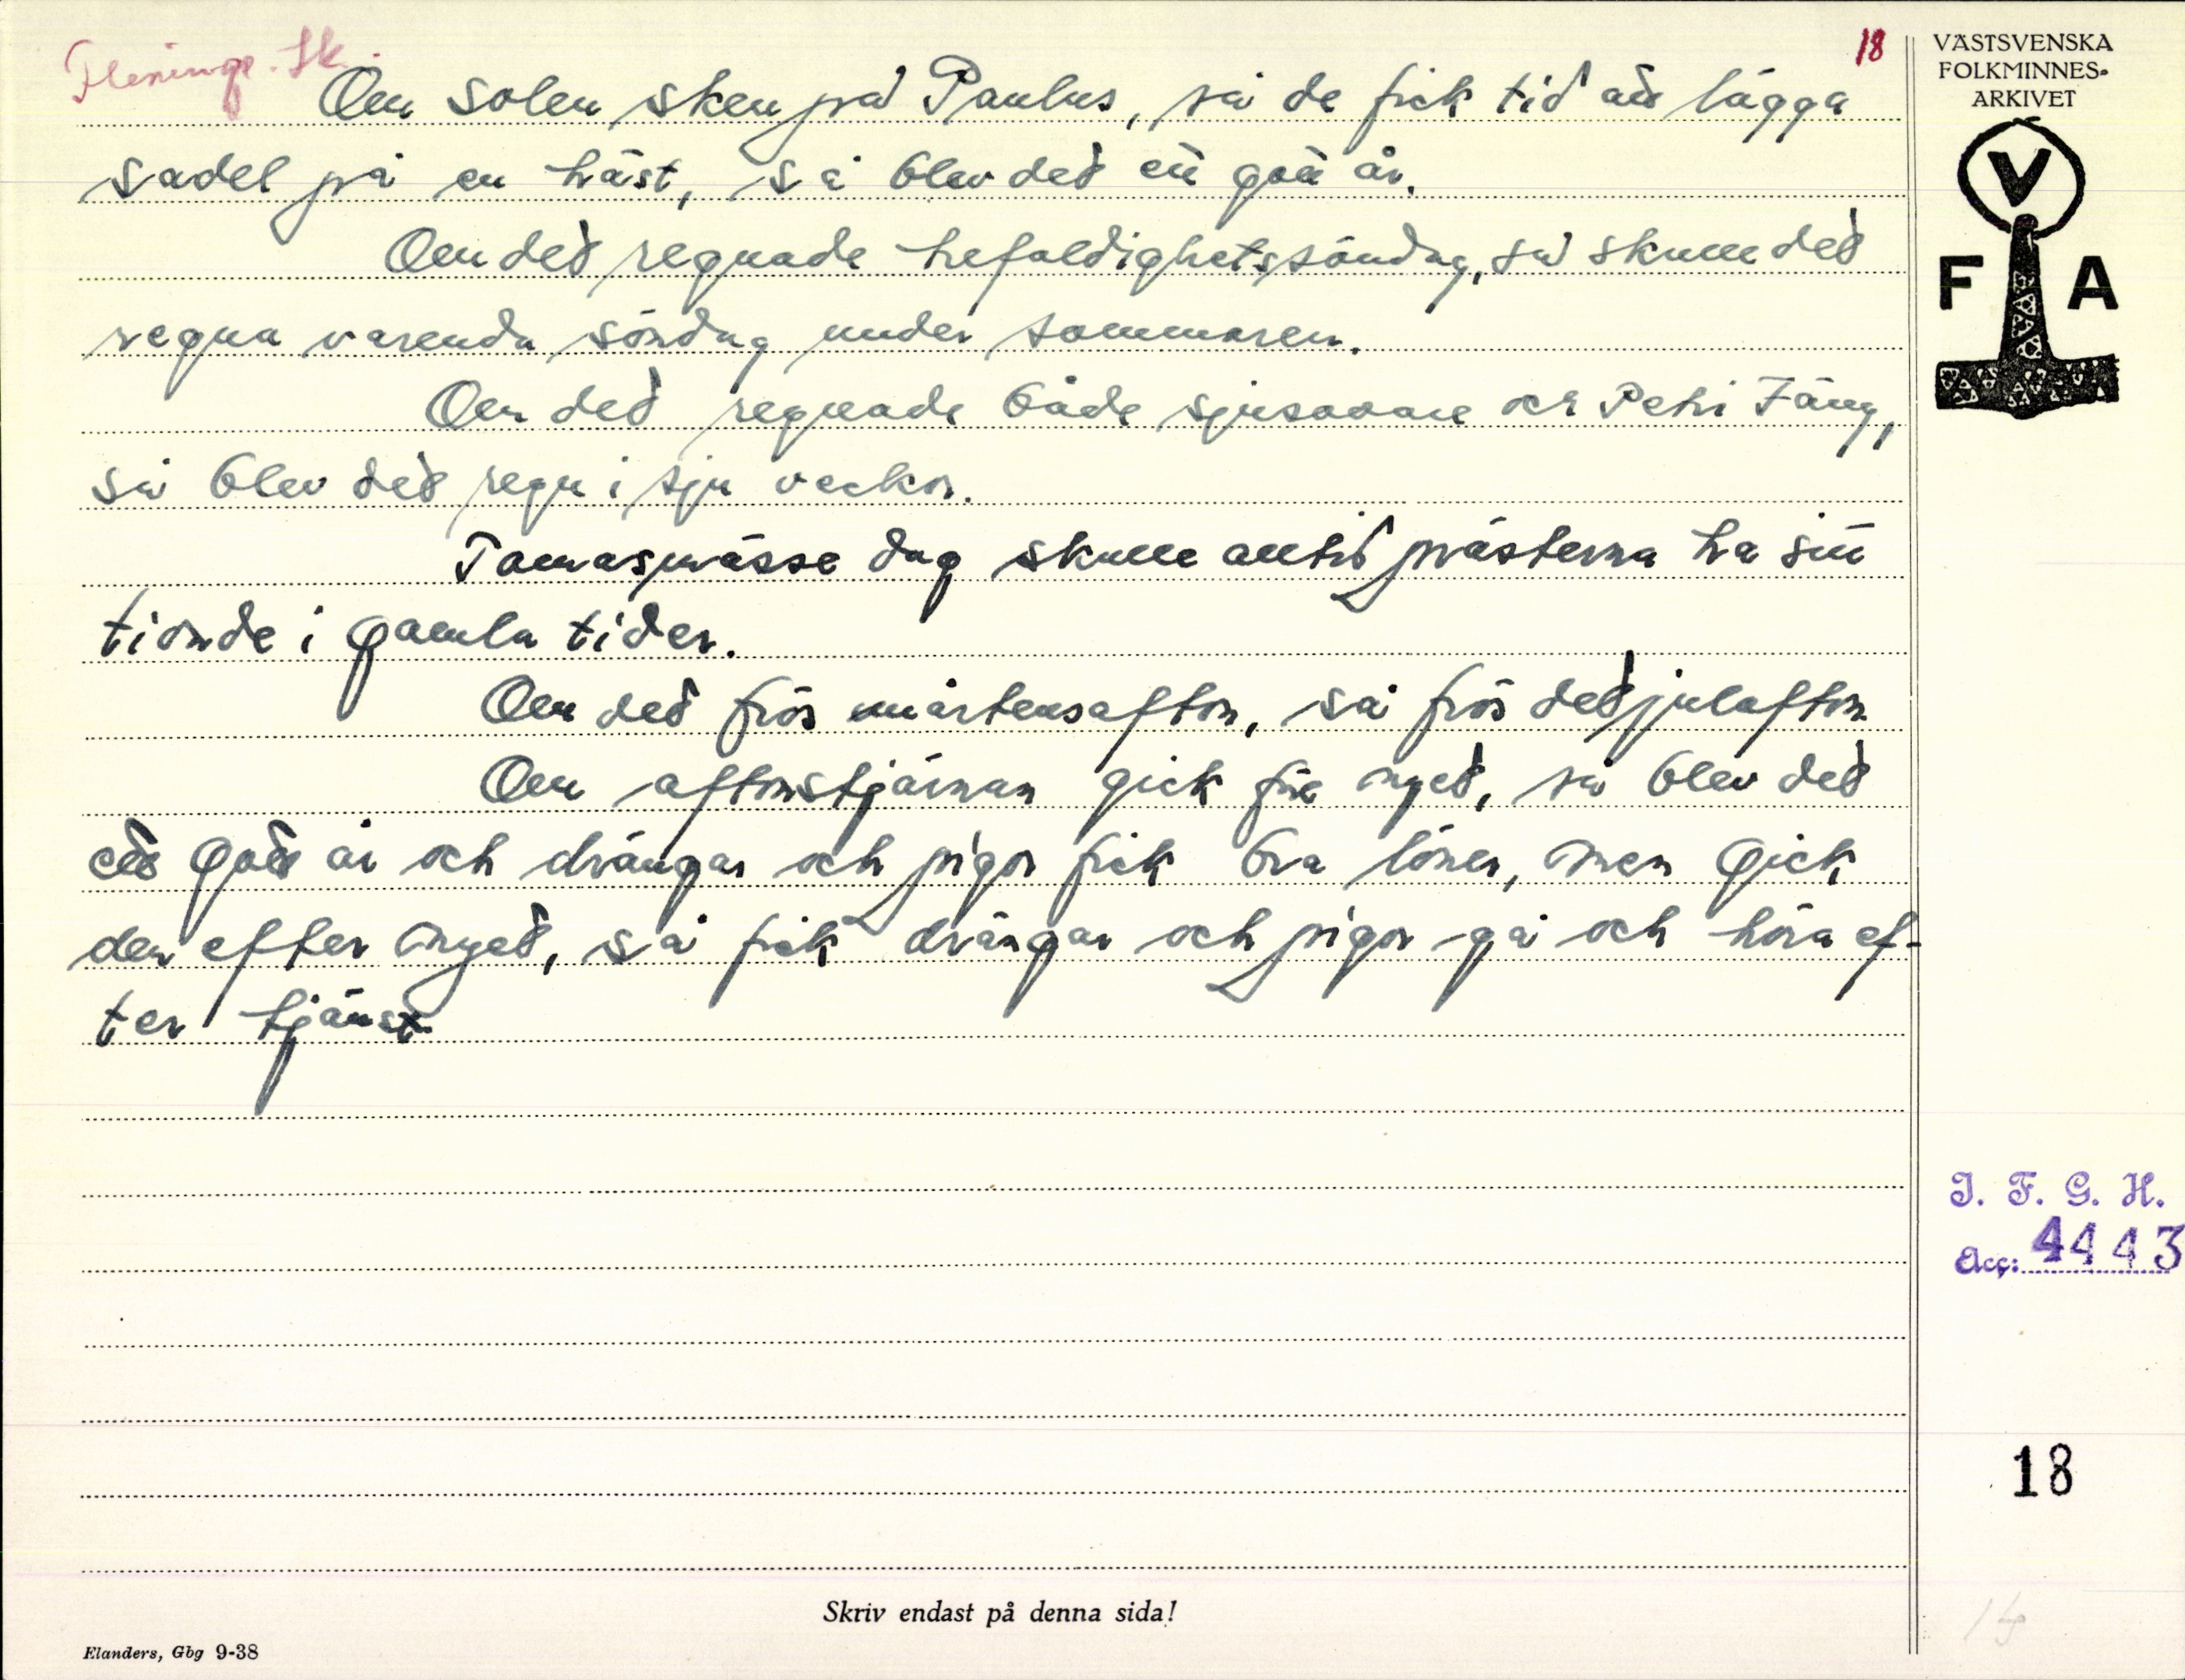 Fleninge. Sk.
18
Om solen sken på Paulus, så de fick tid att lägga
sadel på en häst, så blev det ett gott år.
Om det regnade trefaldighetssöndag, så skulle det
regna varenda söndag under sommaren.
Om det regnade både sjusovare och Petri Fäng,
så blev det regn i sju veckor.
Tomasmässe dag skulle alltid prästerna ha sitt
tionde i gamla tider.
Om det frös mårtensafton, så frös det julafton
Om aftonstjärnan gick före nyet, så blev det
ett gott år och drängar och pigor fick bra löner, men gick
den efter nyet, så fick drängar och pigor gå och höra ef-
ter tjänst.
VÄSTSVENSKA
FOLKMINNES-
ARKIVET
V
F A
I. F. G. H.
Acc: 4443
18
Skriv endast på denna sida!
Elanders, Gbg 9-38